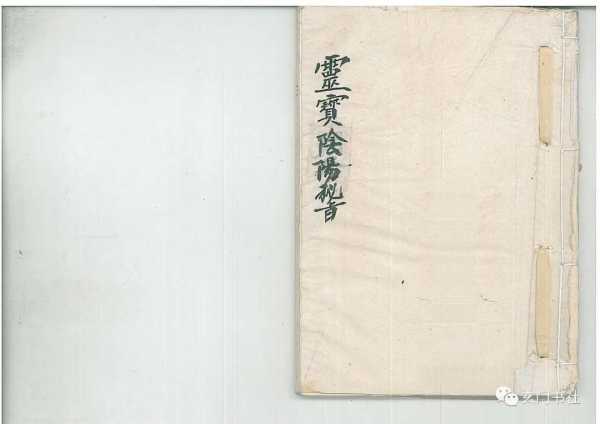 靈寳陰陽秘旨
玄门书社